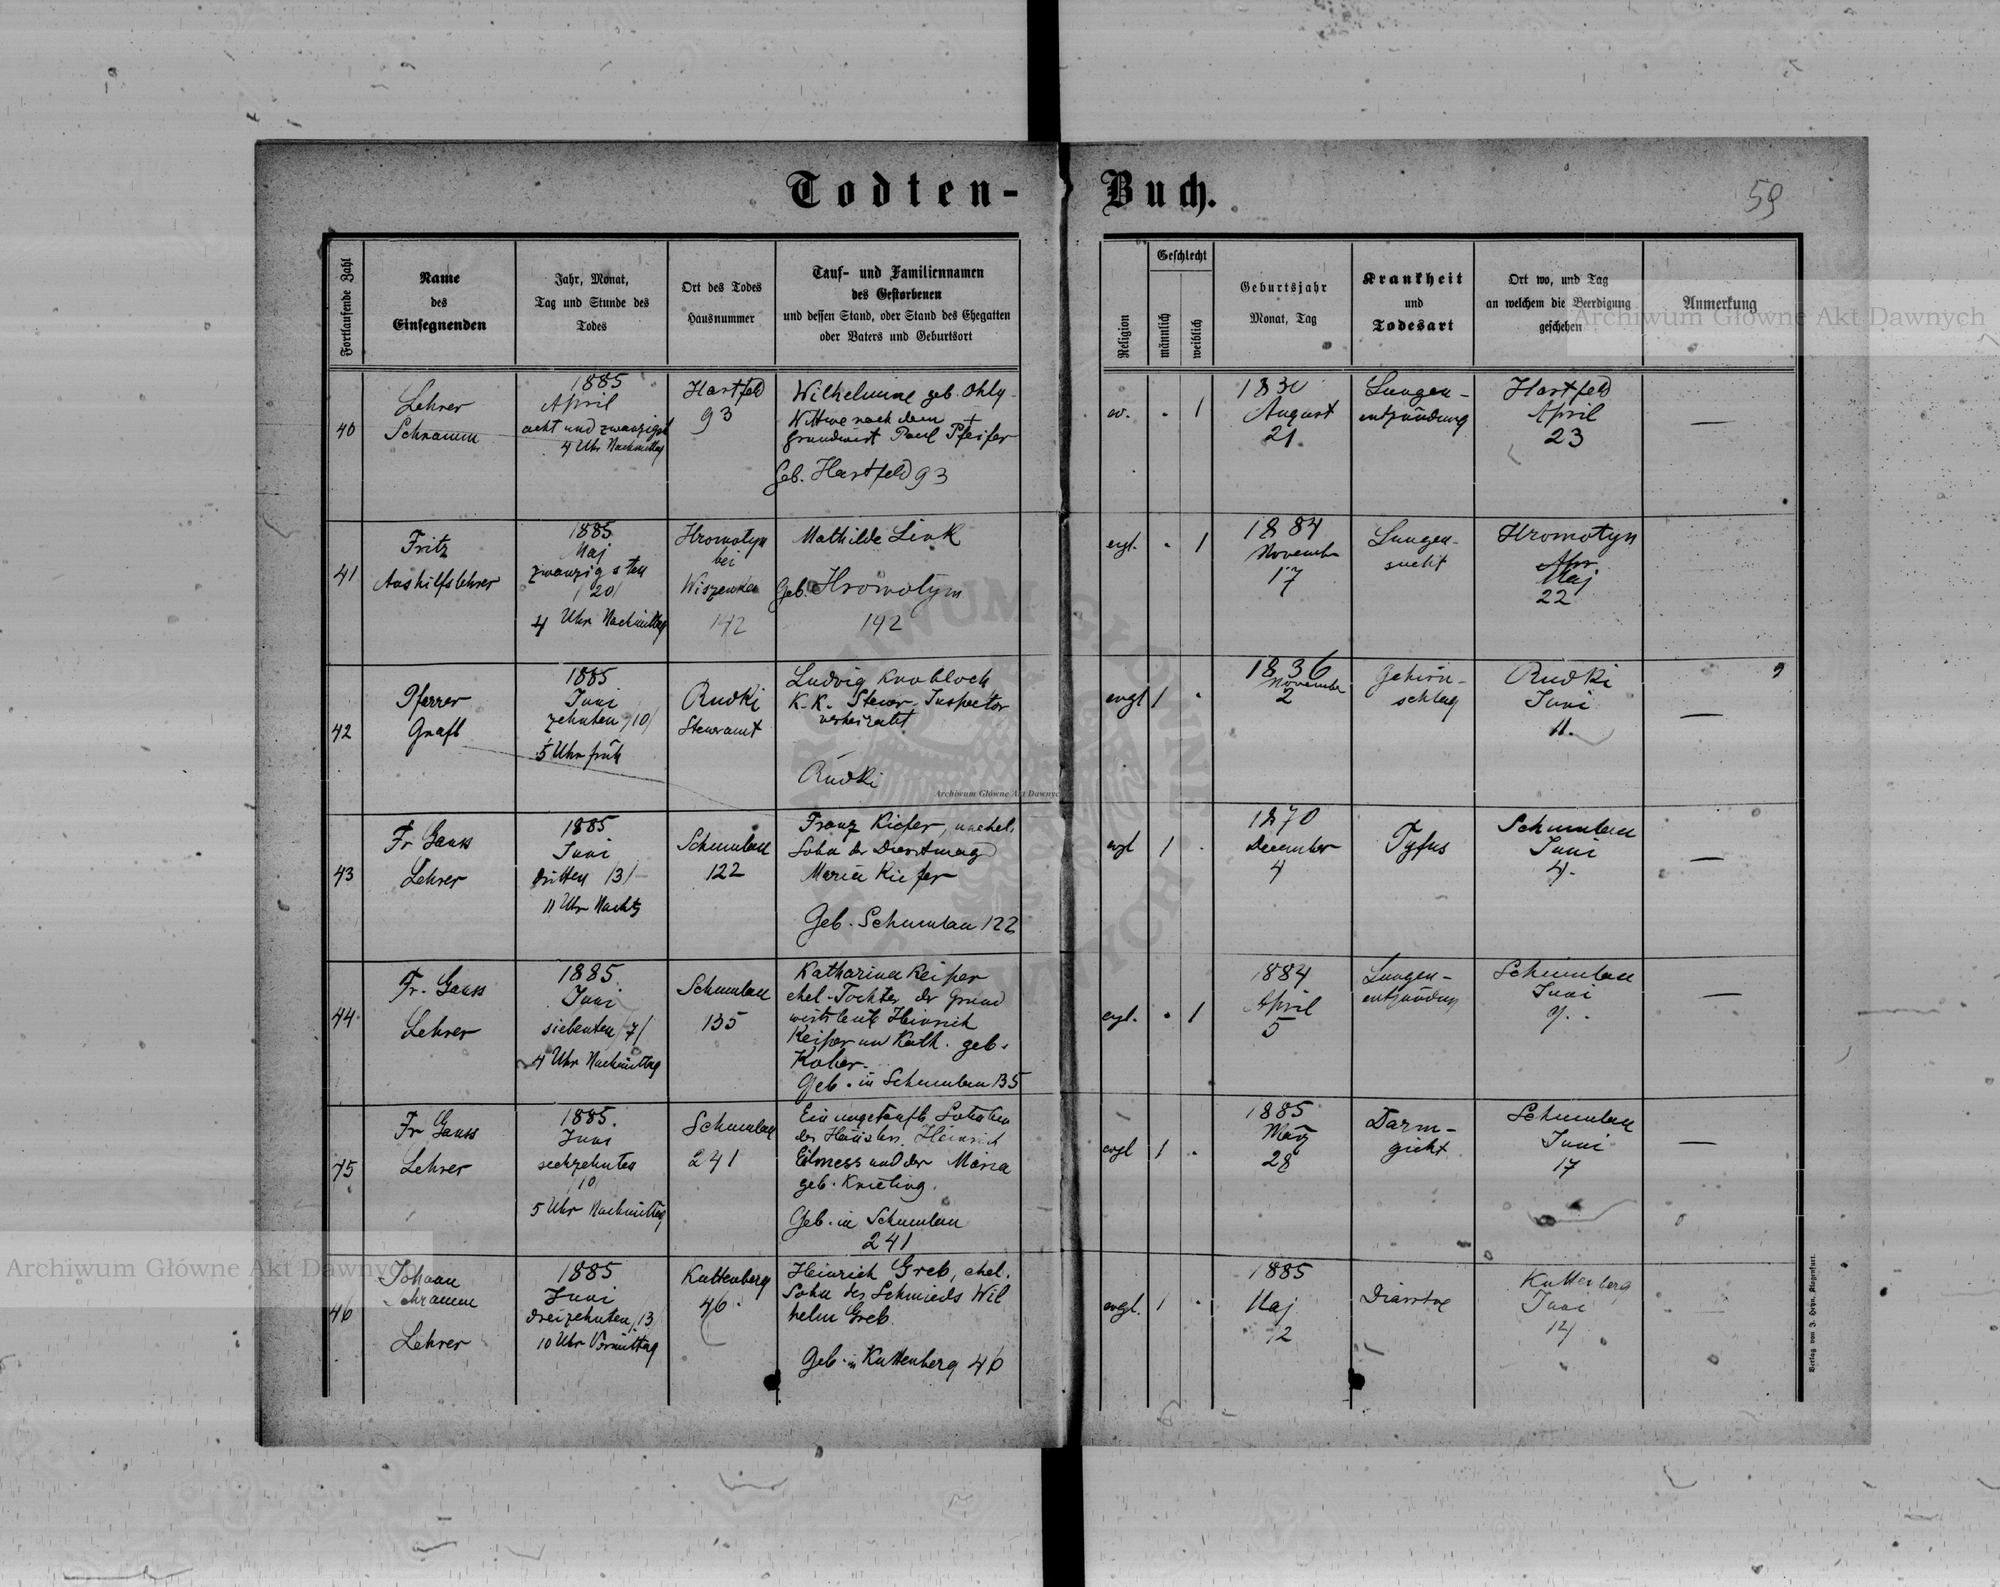 Todten-Buch.
59
Fortlaufende Zahl
Name
des
Einsegnenden
Jahr, Monat,
Tag und Stunde des
Todes
Ort des Todes
Hausnummer
Tauf- und Familiennamen
des Gestorbenen
und dessen Stand, oder Stand des Ehegatten
oder Vaters und Geburtsort
Religion
Geschlecht
männlich
weiblich
Geburtsjahr
Monat, Tag
Krankheit
und
Todesart
Ort wo, und Tag
an welchem die Beerdigung
geschehen
Anmerkung
Archiwum Główne Akt Dawnych
40
Lehrer
Schramm
1885
April
acht und zwanzigst
4 Uhr Nachmittag
Hartfeld
93
Wilhelmine geb. Ohly
Wittwe nach dem
Grundwirt Paul Pfeifer
Geb. Hartfeld 93
ev.
1
August
21.
Lungen-
entzündung
Hartfeld
April
23
—
41
Fritz
Aushilfslehrer
1885
Maj
zwanzigsten
/20/
4 Uhr Nachmittag
Hromotyn
bei
Wiszenka
142
Mathilde Link
Geb. Hromotyn
142
evgl.
1
1884
November
17
Lungen-
sucht
Hromotyn
Maj
22
42
Pfarrer
Grafl
1885
Juni
zehnten /10/
5 Uhr früh
Rudki
Steueramt
Ludvig Knobloch
K. K. Steuer-Inspector
verheiratet
Rudki
evgl
1
1836
November
2
Gehirn-
schlag
Rudki
Juni
11.
—
43
Fr Gauss
Lehrer
1885
Juni
dritten /3/
11 Uhr Nachts
Schumlau
122
Franz Kiefer, unehel.
Sohn der Dienstmagd
Maria Kiefer
Geb. Schumlau 122
evgl
1
1870
December
4
Tyfus
Schumlau
Juni
4.
—
44
Fr. Gauss
Lehrer
1885
Juni
siebenten /7/
4 Uhr Nachmittag
Schumlau
135
Katharina Keiper
ehel. Tochter der Grund
wirtsleute Heinrich
Keiper und Kath. geb.
Kober.
Geb. in Schumlau 135
evgl.
1
1884
April
5
Lungen-
entzündung
Schumlau
Juni
9.
—
45
Fr Gauss
Lehrer
1885.
Juni
sechzehnten
5 Uhr Nachmittag
Schumlau
241
Ein ungetauft Söhnchen
des Häuslers Heinrich
und der Maria
geb. Knieling.
Geb. in Schumlau
241
evgl
1
1885
März
28
Darm-
gicht
Schumlau
Juni
17
—
46
Johann
Schramm
Lehrer
1885
Juni
dreizehnten /13/
10 Uhr Vormittag
Kuttenberg
46.
Heinrich Greb, ehel.
Sohn des Schmieds Wil
helm Greb.
Geb. in Kuttenberg 46
evgl.
1
1885
Maj
12
Kuttenberg
Juni
14
Verlag von J. Heyn, Klagenfurt.
Archiwum Główne Akt Dawnych
Archiwum Główne Akt Dawnych